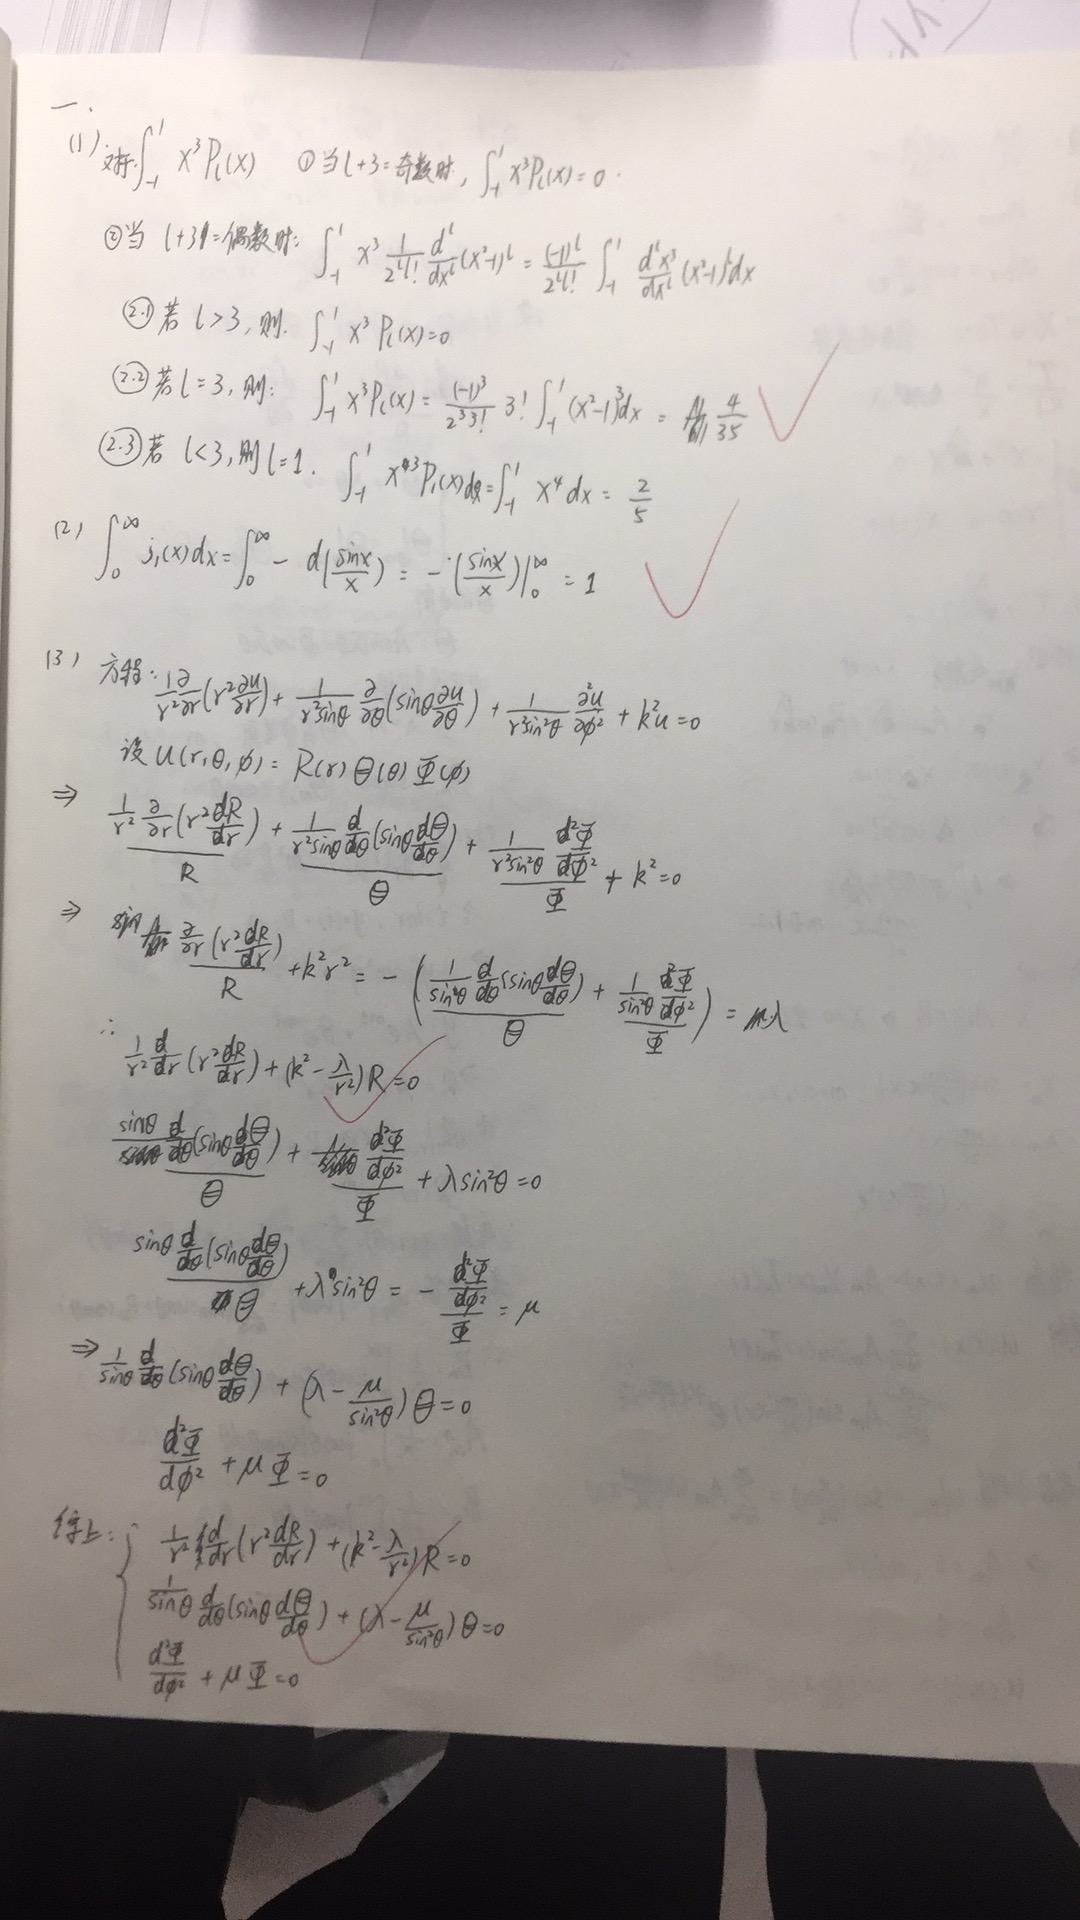 一.
(1). 对于∫₋₁¹ x³Pₗ(x) ①当l+3=奇数时, ∫₋₁¹ x³Pₗ(x)=0.
②当 l+3=偶数时: ∫₋₁¹ x³ 1/(2ˡl!) dˡ/dxˡ (x²-1)ˡ = (-1)ˡ/(2ˡl!) ∫₋₁¹ dˡx³/dxˡ (x²-1)ˡdx
(2.1) 若 l>3, 则. ∫₋₁¹ x³ Pₗ(x)=0
(2.2) 若 l=3, 则: ∫₋₁¹ x³Pₗ(x) = (-1)³/(2³3!) 3! ∫₋₁¹ (x²-1)³dx = 4/35
(2.3) 若 l<3, 则 l=1. ∫₋₁¹ x³P₁(x)dx=∫₋₁¹ x⁴dx = 2/5
(2) ∫₀^∞ j₁(x)dx=∫₀^∞ - d(sinx/x) = -(sinx/x)|₀^∞ = 1
(3) 方程: 1/r² ∂/∂r (r² ∂u/∂r) + 1/(r²sinθ) ∂/∂θ (sinθ ∂u/∂θ) + 1/(r²sin²θ) ∂²u/∂φ² + k²u=0
设 u(r,θ,φ) = R(r)Θ(θ)Φ(φ)
⇒ [1/r² ∂/∂r (r² dR/dr)]/R + [1/(r²sinθ) d/dθ (sinθ dΘ/dθ)]/Θ + [1/(r²sin²θ) d²Φ/dφ²]/Φ + k²=0
⇒ [∂/∂r (r² dR/dr)]/R + k²r² = -([1/sin²θ d/dθ (sinθ dΘ/dθ)]/Θ + [1/sin²θ d²Φ/dφ²]/Φ) = λ
∴ 1/r² d/dr (r² dR/dr) + (k² - λ/r²)R=0
[sinθ d/dθ (sinθ dΘ/dθ)]/Θ + [d²Φ/dφ²]/Φ + λsin²θ=0
[sinθ d/dθ (sinθ dΘ/dθ)]/Θ + λsin²θ = - [d²Φ/dφ²]/Φ = μ
⇒ 1/sinθ d/dθ (sinθ dΘ/dθ) + (λ - μ/sin²θ)Θ=0
d²Φ/dφ² + μΦ=0
综上: { 1/r² d/dr (r² dR/dr) + (k² - λ/r²)R=0
1/sinθ d/dθ (sinθ dΘ/dθ) + (λ - μ/sin²θ)Θ=0
d²Φ/dφ² + μΦ=0